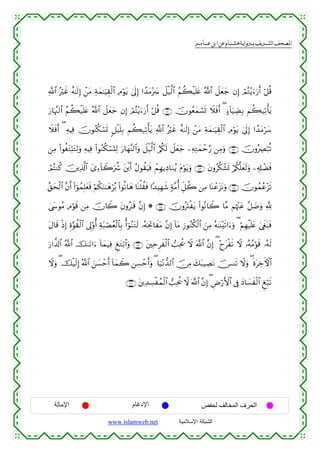 المصحف الشريف برواية هشام عن ابن عامر
قُلْ أَرَءَيْتُمْ إِن جَعَلَ ٱللَّهُ عَلَيْكُمُ ٱلَّيْلَ سَرْمَدًا إِلَىٰ يَوْمِ ٱلْقِيَـٰمَةِ مَنْ إِلَـٰهٌ غَيْرُ ٱللَّهِ
يَأْتِيكُم بِضِيَآءٍ ۖ أَفَلَا تَسْمَعُونَ ﴿٧١﴾ قُلْ أَرَءَيْتُمْ إِن جَعَلَ ٱللَّهُ عَلَيْكُمُ ٱلنَّهَارَ
سَرْمَدًا إِلَىٰ يَوْمِ ٱلْقِيَـٰمَةِ مَنْ إِلَـٰهٌ غَيْرُ ٱللَّهِ يَأْتِيكُم بِلَيْلٍ تَسْكُنُونَ فِيهِ ۖ أَفَلَا
تُبْصِرُونَ ﴿٧٢﴾ وَمِن رَّحْمَتِهِۦ جَعَلَ لَكُمُ ٱلَّيْلَ وَٱلنَّهَارَ لِتَسْكُنُوا۟ فِيهِ وَلِتَبْتَغُوا۟ مِن
فَضْلِهِۦ وَلَعَلَّكُمْ تَشْكُرُونَ ﴿٧٣﴾ وَيَوْمَ يُنَادِيهِمْ فَيَقُولُ أَيْنَ شُرَكَآءِىَ ٱلَّذِينَ كُنتُمْ
تَزْعُمُونَ ﴿٧٤﴾ وَنَزَعْنَا مِن كُلِّ أُمَّةٍ شَهِيدًا فَقُلْنَا هَاتُوا۟ بُرْهَـٰنَكُمْ فَعَلِمُوٓا۟ أَنَّ ٱلْحَقَّ
لِلَّهِ وَضَلَّ عَنْهُم مَّا كَانُوا۟ يَفْتَرُونَ ﴿٧٥﴾ ۞ إِنَّ قَـٰرُونَ كَانَ مِن قَوْمِ مُوسَىٰ
فَبَغَىٰ عَلَيْهِمْ ۖ وَءَاتَيْنَـٰهُ مِنَ ٱلْكُنُوزِ مَآ إِنَّ مَفَاتِحَهُۥ لَتَنُوٓأُ بِٱلْعُصْبَةِ أُو۟لِى ٱلْقُوَّةِ إِذْ قَالَ
لَهُۥ قَوْمُهُۥ لَا تَفْرَحْ ۖ إِنَّ ٱللَّهَ لَا يُحِبُّ ٱلْفَرِحِينَ ﴿٧٦﴾ وَٱبْتَغِ فِيمَآ ءَاتَىٰكَ ٱللَّهُ ٱلدَّارَ
ٱلْـَٔاخِرَةَ ۖ وَلَا تَنسَ نَصِيبَكَ مِنَ ٱلدُّنْيَا ۖ وَأَحْسِن كَمَآ أَحْسَنَ ٱللَّهُ إِلَيْكَ ۖ وَلَا
تَبْغِ ٱلْفَسَادَ فِى ٱلْأَرْضِ ۖ إِنَّ ٱللَّهَ لَا يُحِبُّ ٱلْمُفْسِدِينَ ﴿٧٧﴾
الحرف المخالف لحفص الإدغام الإمالة
الشبكة الإسلامية www.islamweb.net